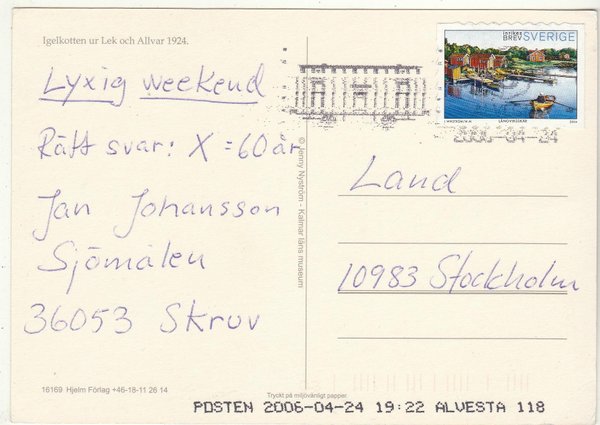 Igelkotten ur Lek och Allvar 1924.
Lyxig weekend
Rätt svar: X = 60 år
Jan Johansson
Sjömålen
36053 Skruv
16169 Hjelm Förlag +46-18-11 26 14
© Jenny Nyström - Kalmar läns museum
Tryckt på miljövänligt papper.
inrikes
BREV SVERIGE
LÅNGVIKSSKÄR
2006-04-24
Land
10983 Stockholm
POSTEN 2006-04-24 19:22 ALVESTA 118